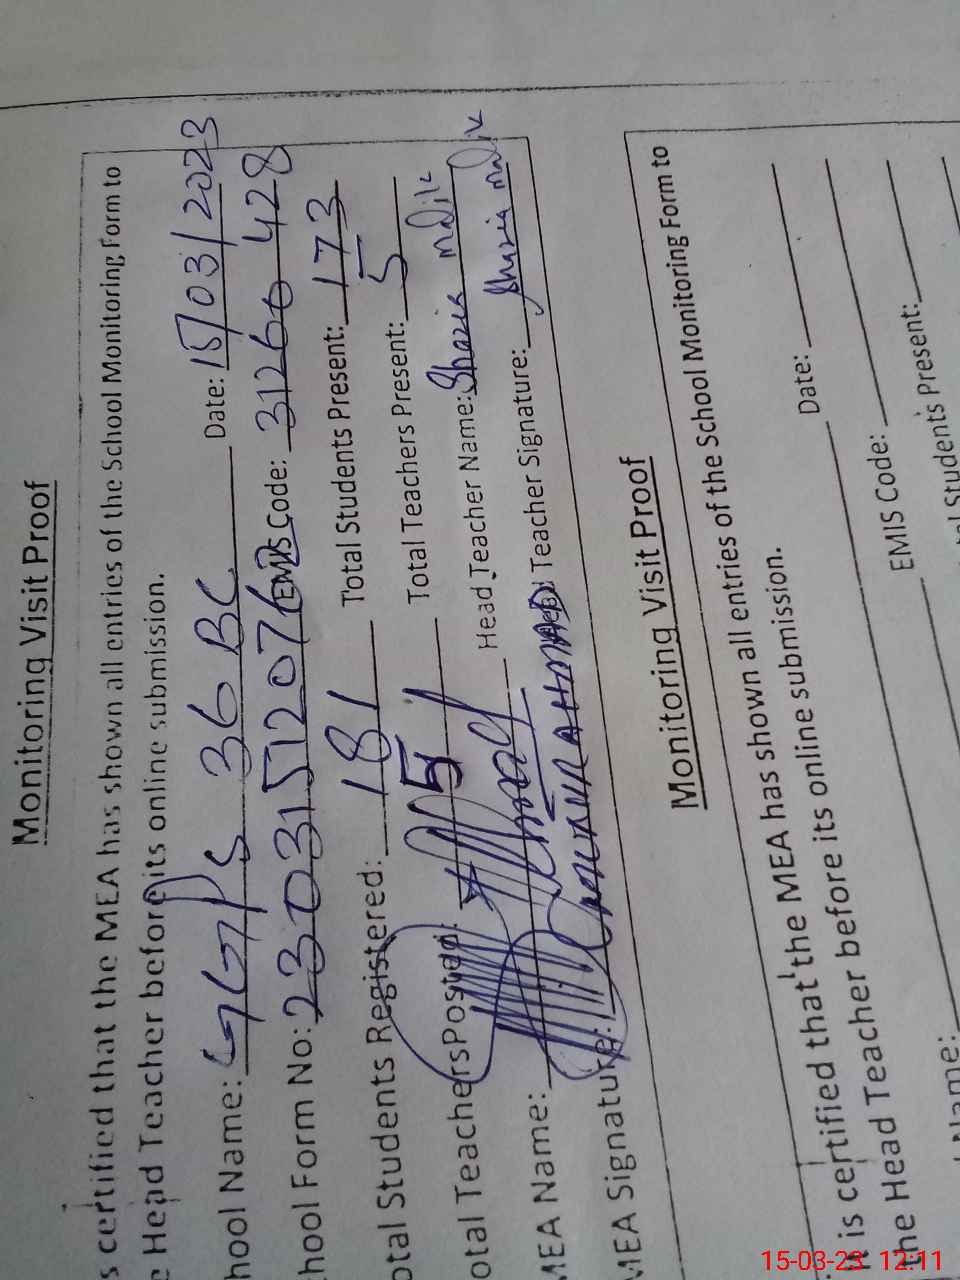 Monitoring Visit Proof
s certified that the MEA has shown all entries of the School Monitoring Form to
e Head Teacher before its online submission.
hool Name: GGPS 36 BC Date: 15/03/2023
hool Form No: 230315120716 EMIS Code: 31266428
otal Students Registered: 181 Total Students Present: 173
otal Teachers Posted: 5 Total Teachers Present: 5
MEA Name: Head Teacher Name: Shazia malik
MEA Signature: AHMAD Head Teacher Signature: Shazia malik
Monitoring Visit Proof
It is certified that the MEA has shown all entries of the School Monitoring Form to
the Head Teacher before its online submission.
Date:
Name: EMIS Code:
tal Students Present:
15-03-23 12:11